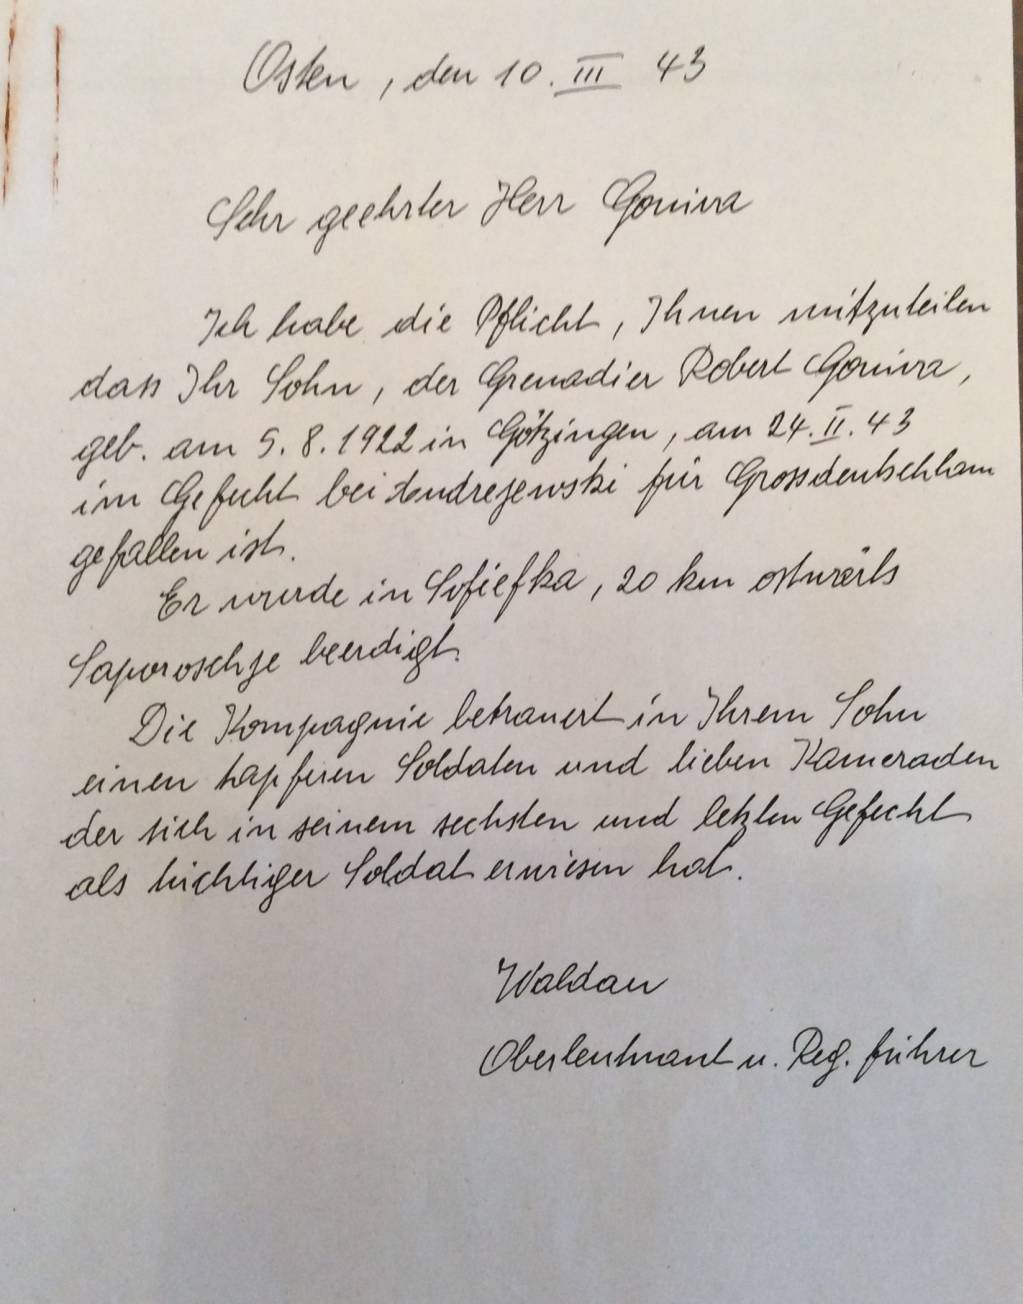 Osten, den 10. III 43
Sehr geehrter Herr Goniva
Ich habe die Pflicht, Ihnen mitzuteilen
dass Ihr Sohn, der Grenadier Robert Goniva,
geb. am 5.8.1922 in Götzingen, am 24. II. 43
im Gefecht bei Andrejewski für Grossdeutschlan
gefallen ist.
Er wurde in Sofiefka, 20 km ostwärts
Saporoschje beerdigt.
Die Kompagnie betrauert in Ihrem Sohn
einen tapferen Soldaten und lieben Kameraden
der sich in seinem sechsten und letzten Gefecht
als tüchtiger Soldat erwiesen hat.
Waldau
Oberleutnant u. Reg. führer